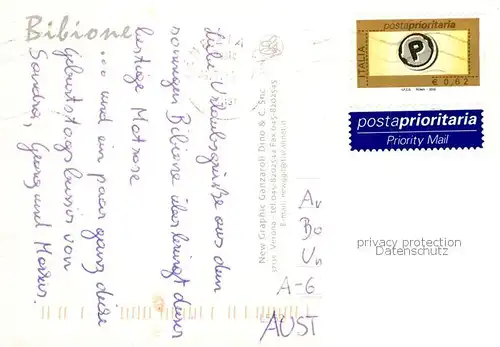 Bibione
Liebe Urlaubsgrüße aus dem
sonnigen Bibione überbringt dieser
lustige Matrose
... und ein paar ganz dicke
Geburtstagsbussis von
Sandra, Georg und Markus.
New Graphic Ganzaroli Dino & C. Snc
37131 Verona - tel 045/8202542 Fax 045/8202545
ITALIA
postaprioritaria
P
€ 0,62
postaprioritaria
Priority Mail
privacy protection
Datenschutz
A-6
AUST